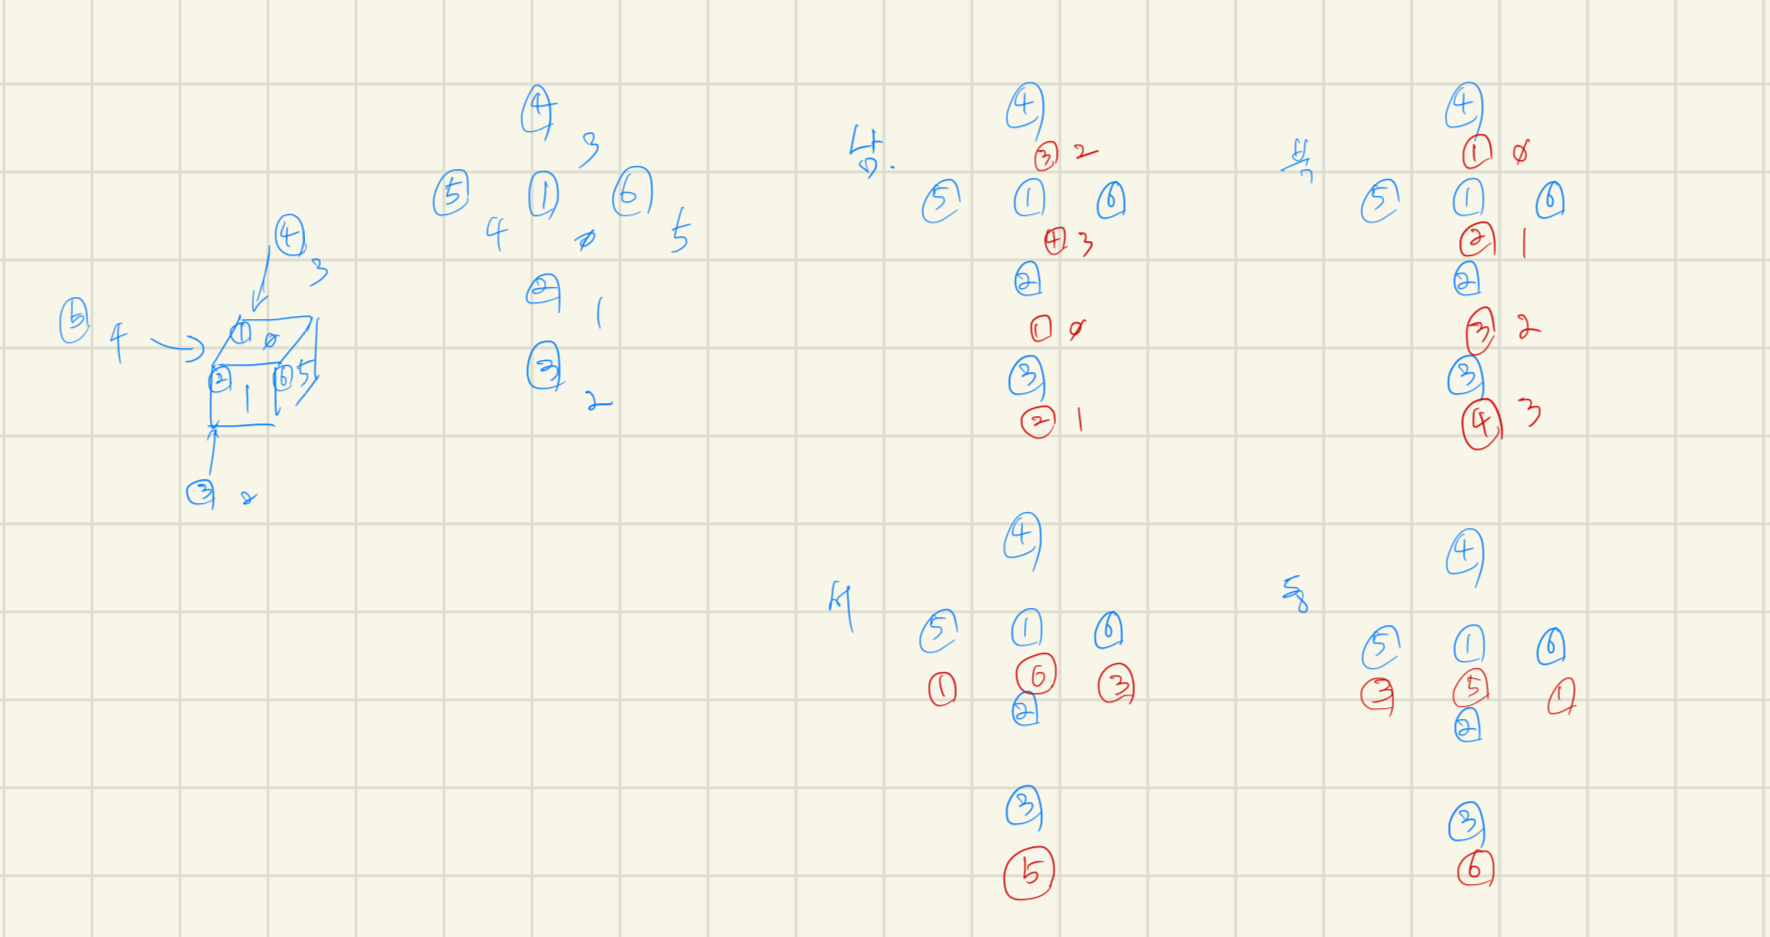 ④
3
⑤ 4
① ø
② 1 ⑥ 5
③ 2
④
3
⑤ ① ⑥
4 ø 5
②
1
③
2
남.
④
③ 2
⑤ ① ⑥
④ 3
②
① ø
③
② 1
북
④
① ø
⑤ ① ⑥
② 1
②
③ 2
③
④ 3
서
④
⑤ ① ⑥
① ⑥ ③
②
③
⑤
동
④
⑤ ① ⑥
③ ⑤ ①
②
③
⑥